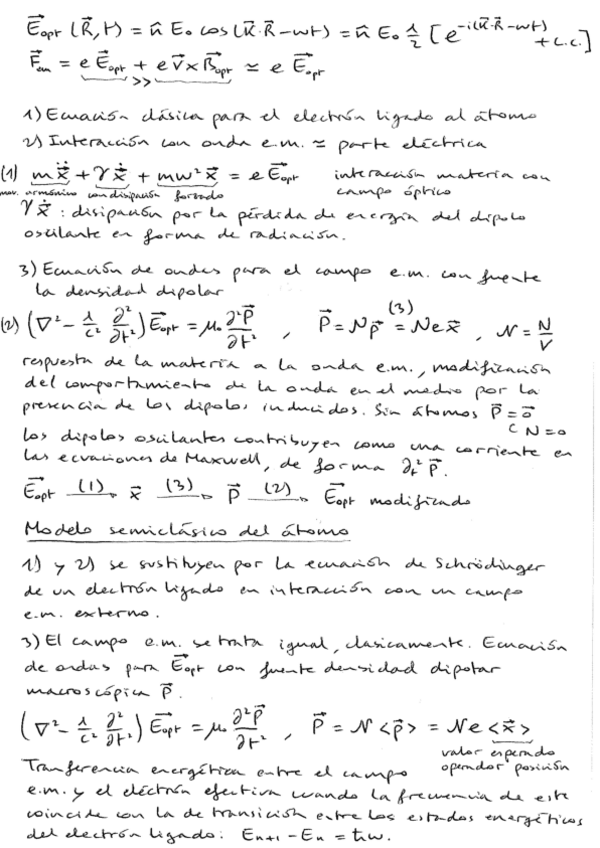 E⃗opt (R⃗,t) = n̂ E₀ cos(k⃗·R⃗-wt) = n̂ E₀ 1/2 [e^-i(k⃗·R⃗-wt) + c.c.]
F⃗em = e E⃗opt + e v⃗ x B⃗opt ≃ e E⃗opt
>>
1) Ecuación clásica para el electrón ligado al átomo
2) Interacción con onda e.m. ≃ parte eléctrica
(1) m ẍ⃗ + γ ẋ⃗ + mw² x⃗ = e E⃗opt interacción materia con
mov. armónico con disipación forzado campo óptico
γ ẋ⃗ : disipación por la pérdida de energía del dipolo
oscilante en forma de radiación.
3) Ecuación de ondas para el campo e.m. con fuente
la densidad dipolar
(2) (∇² - 1/c² ∂²/∂t²) E⃗opt = μ₀ ∂²P⃗/∂t² , P⃗ = N p⃗ =(3) N e x⃗ , N = N/V
respuesta de la materia a la onda e.m., modificación
del comportamiento de la onda en el medio por la
presencia de los dipolos inducidos. Sin átomos P⃗ = 0⃗
N = 0
Los dipolos oscilantes contribuyen como una corriente en
las ecuaciones de Maxwell, de forma ∂t² P⃗.
E⃗opt (1)→ x⃗ (3)→ P⃗ (2)→ E⃗opt modificado
Modelo semiclásico del átomo
1) y 2) se sustituyen por la ecuación de Schrödinger
de un electrón ligado en interacción con un campo
e.m. externo.
3) El campo e.m. se trata igual, clasicamente. Ecuación
de ondas para E⃗opt con fuente densidad dipolar
macroscópica P⃗.
(∇² - 1/c² ∂²/∂t²) E⃗opt = μ₀ ∂²P⃗/∂t² , P⃗ = N <p⃗> = N e <x⃗>
valor esperado
Tranferencia energética entre el campo operador posición
e.m. y el electrón efectiva cuando la frecuencia de este
coincide con la de transición entre los estados energéticos
del electrón ligado: En+1 - En = ħw.